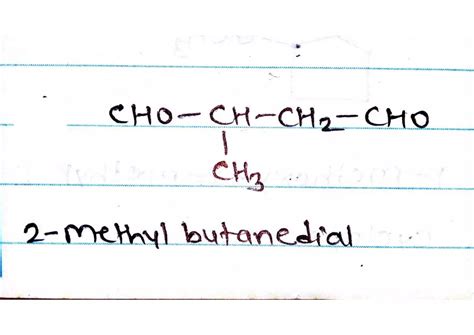 CHO-CH-CH₂-CHO
|
CH₃
2-methyl butanedial